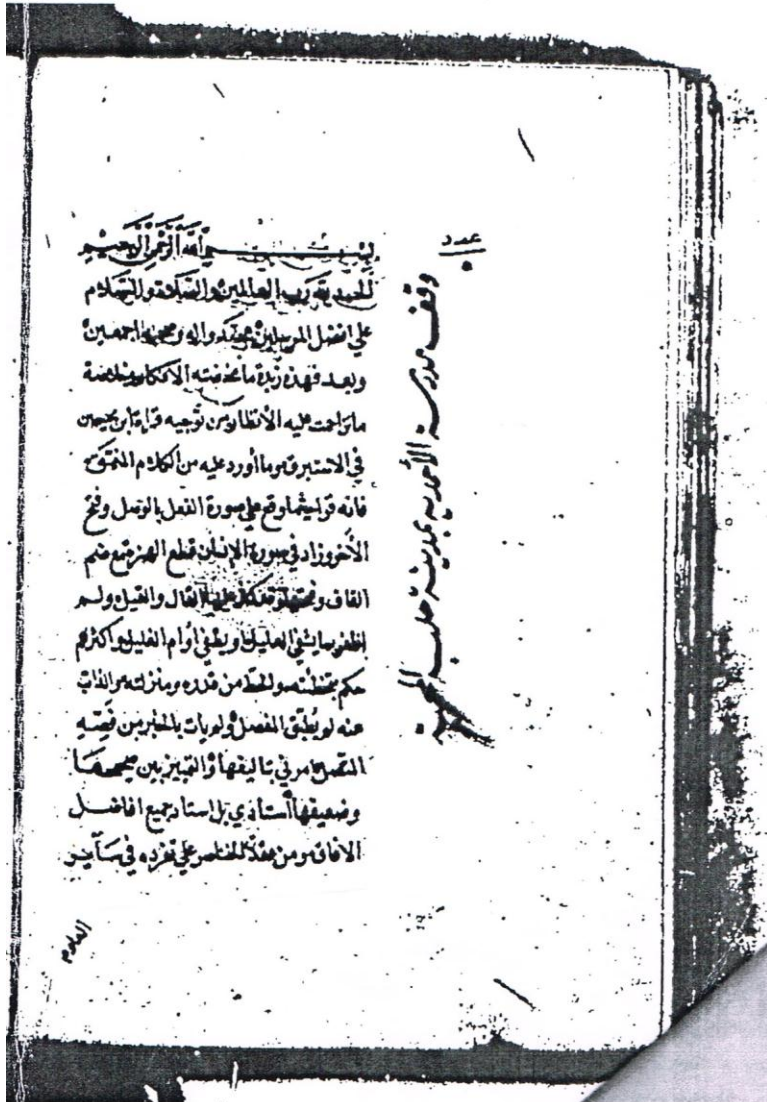 بسم الله الرحمن الرحيم
الحمد لله رب العالمين والصلاة والسلام
علي افضل المرسلين محمد واله وصحبه اجمعين
وبعد فهذه زبدة ما مخضته الافكار وخلاصة
ما تزاحمت عليه الأنظار من توجيه قراءة ابن محيصن
في الاستبرق وما أورد عليه من الكلام المنمق
فانه قرا حيثما وقع علي صورة الفعل بالوصل وفتح
الأخر وزاد في صورة الإنسان قطع الهمز مع ضم
القاف وفتحها وقد كثر عليها القال والقيل ولم
اظفر بما يشفي العليل أو يطفي أوام الغليل واكثرهم
حكم بتخطئته والحط من قدره ومنزلته والذابّ
عنه لم يُطبّق المفصل ولم يات بالخبر من فصّه
المتصل امرني بتاليفها والتمييز بين صحيحها
وضعيفها أستاذي بل استاد جميع افاضل
الافاق ومن عقد الخناصر علي تفرده في سآيـر
العلوم
عدد
وقف مدرسة الأحمدية بمدينة حلب المحمية